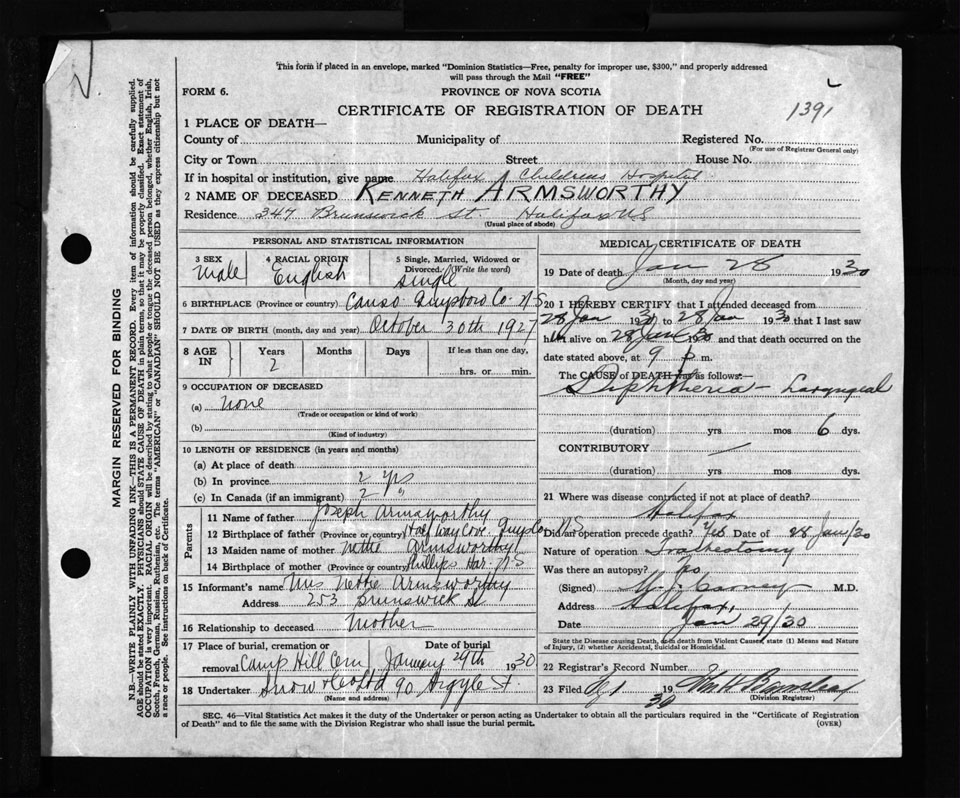 This form if placed in an envelope, marked "Dominion Statistics—Free, penalty for improper use, $300," and properly addressed
will pass through the Mail "FREE"
FORM 6.
PROVINCE OF NOVA SCOTIA
CERTIFICATE OF REGISTRATION OF DEATH
1391
1 PLACE OF DEATH—
County of Municipality of Registered No.
(For use of Registrar General only)
City or Town Street House No.
If in hospital or institution, give name Halifax Childrens Hospital
2 NAME OF DECEASED KENNETH ARMSWORTHY
Residence 347 Brunswick St. Halifax N.S
(Usual place of abode)
PERSONAL AND STATISTICAL INFORMATION
3 SEX 4 RACIAL ORIGIN 5 Single, Married, Widowed or
Divorced. (Write the word)
Male English single
6 BIRTHPLACE (Province or country) Canso Guysboro Co. N.S.
7 DATE OF BIRTH (month, day and year) October 30th 1927
8 AGE IN Years Months Days If less than one day,
2 hrs. or min.
9 OCCUPATION OF DECEASED
(a) None
(Trade or occupation or kind of work)
(b)
(Kind of industry)
10 LENGTH OF RESIDENCE (in years and months)
(a) At place of death
(b) In province 2 yrs
(c) In Canada (if an immigrant) 2 "
Parents
11 Name of father Joseph Armsworthy
12 Birthplace of father (Province or country) Half Way Cove Guys Co. N.S
13 Maiden name of mother Nettie Armsworthy
14 Birthplace of mother (Province or country) Phillips Har. N.S
15 Informant's name Mrs Nettie Armsworthy
Address 253 Brunswick St
16 Relationship to deceased Mother
17 Place of burial, cremation or removal Camp Hill Cem Date of burial January 29th 1930
18 Undertaker Snow & Co Ltd 90 Argyle St.
(Name and address)
MEDICAL CERTIFICATE OF DEATH
19 Date of death Jan 28 1930
(Month, day and year)
20 I HEREBY CERTIFY that I attended deceased from
28 Jan 1930 to 28 Jan 1930 that I last saw
him alive on 28 Jan 1930 and that death occurred on the
date stated above, at 9 p m.
The CAUSE of DEATH was as follows:
Diphtheria – Laryngeal
(duration) yrs mos 6 dys.
CONTRIBUTORY
(duration) yrs mos dys.
21 Where was disease contracted if not at place of death?
Halifax
Did an operation precede death? Yes Date of 28 Jan/30
Nature of operation Tracheotomy
Was there an autopsy? No
(Signed) M.D.
Address Halifax,
Date Jan 29/30
State the Disease causing Death, or in death from Violent Causes, state (1) Means and Nature
of Injury, (2) whether Accidental, Suicidal or Homicidal.
22 Registrar's Record Number
23 Filed 1 1930
(Division Registrar)
SEC. 46—Vital Statistics Act makes it the duty of the Undertaker or person acting as Undertaker to obtain all the particulars required in the "Certificate of Registration
of Death" and to file the same with the Division Registrar who shall issue the burial permit.
(OVER)
MARGIN RESERVED FOR BINDING
N.B.—WRITE PLAINLY WITH UNFADING INK—THIS IS A PERMANENT RECORD. Every item of information should be carefully supplied.
AGE should be stated EXACTLY. PHYSICIANS should STATE CAUSE OF DEATH in plain terms, so that it may be properly classified. Exact statement of
OCCUPATION is very important. RACIAL ORIGIN will be described by stating to what people or tongue the deceased person belonged, whether English, Irish,
Scotch, French, German, Russian, Ruthenian, etc. The terms "AMERICAN" or "CANADIAN" SHOULD NOT BE USED as they express citizenship but not
a race or people. See instructions on back of Certificate.